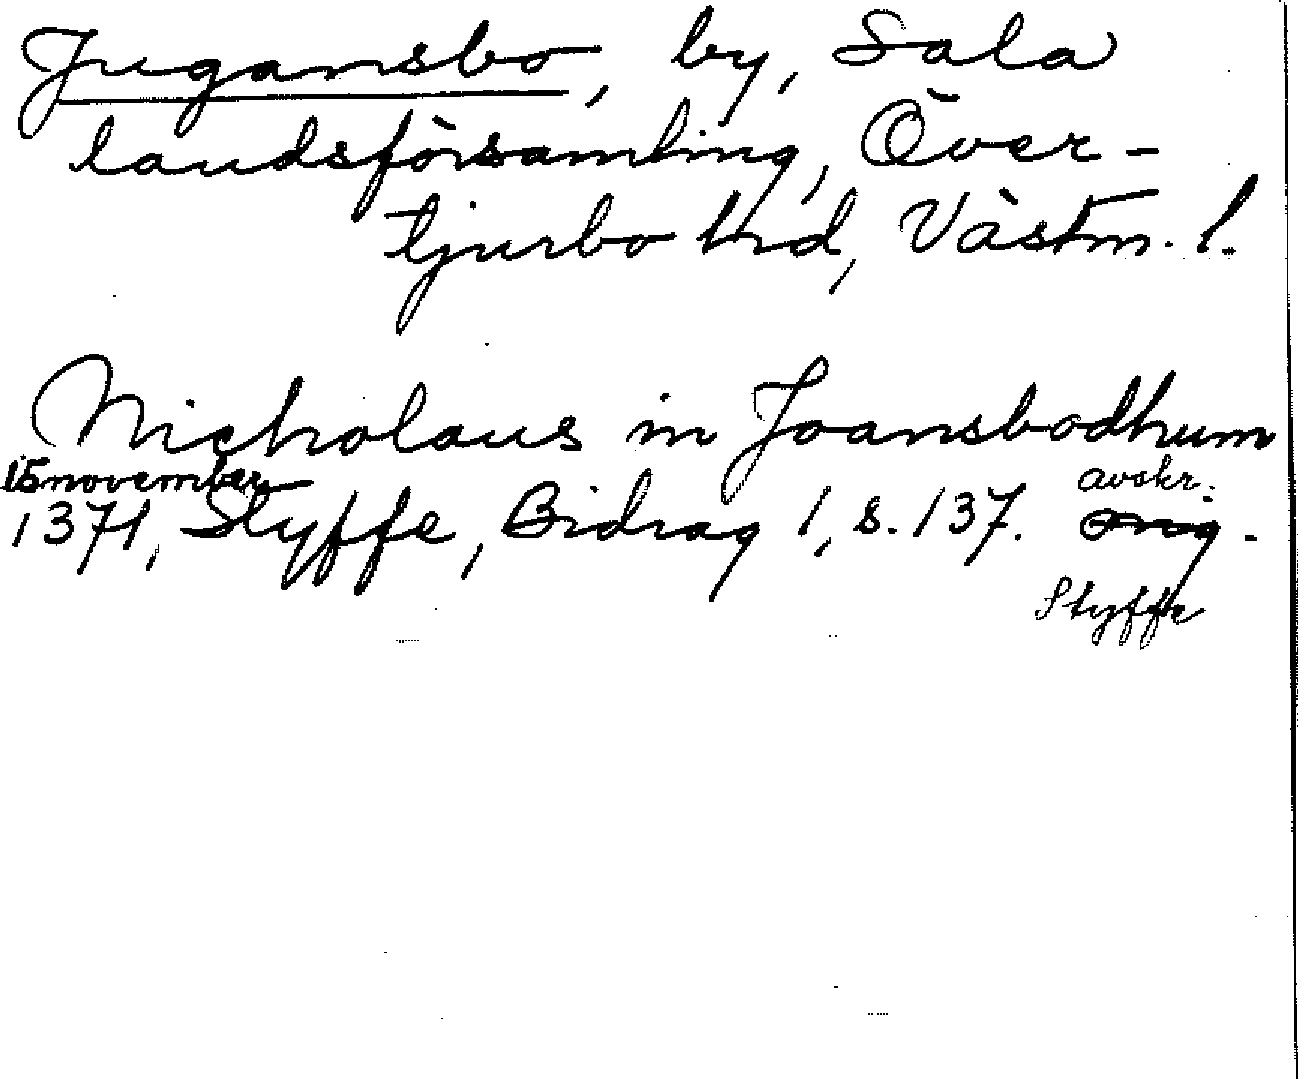 Jugansbo, by, Sala
landsförsamling, Över-
tjurbo hd, Västm. l.
Nicholaus in Joansbodhum
15 november avskr.
1371, Styffe, Bidrag 1, s. 137. orig.
Styffe